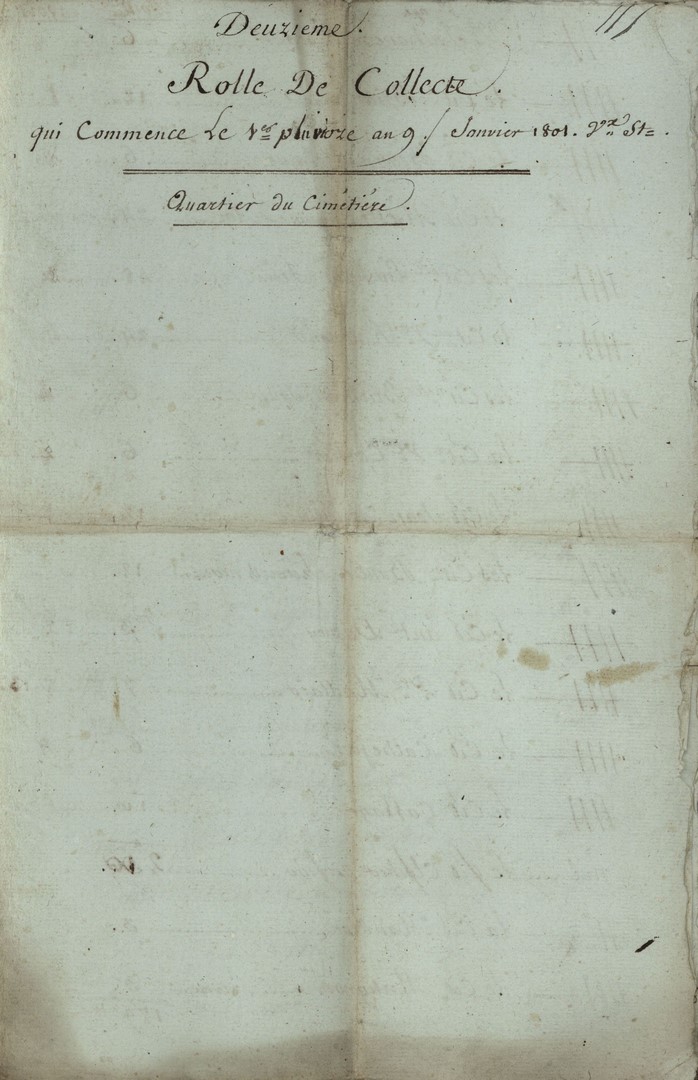 Deuzieme.
Rolle De Collecte.
qui Commence Le 1er pluvioze an 9./ Janvier 1801. Vx St=.
Quartier du Cimétiére.